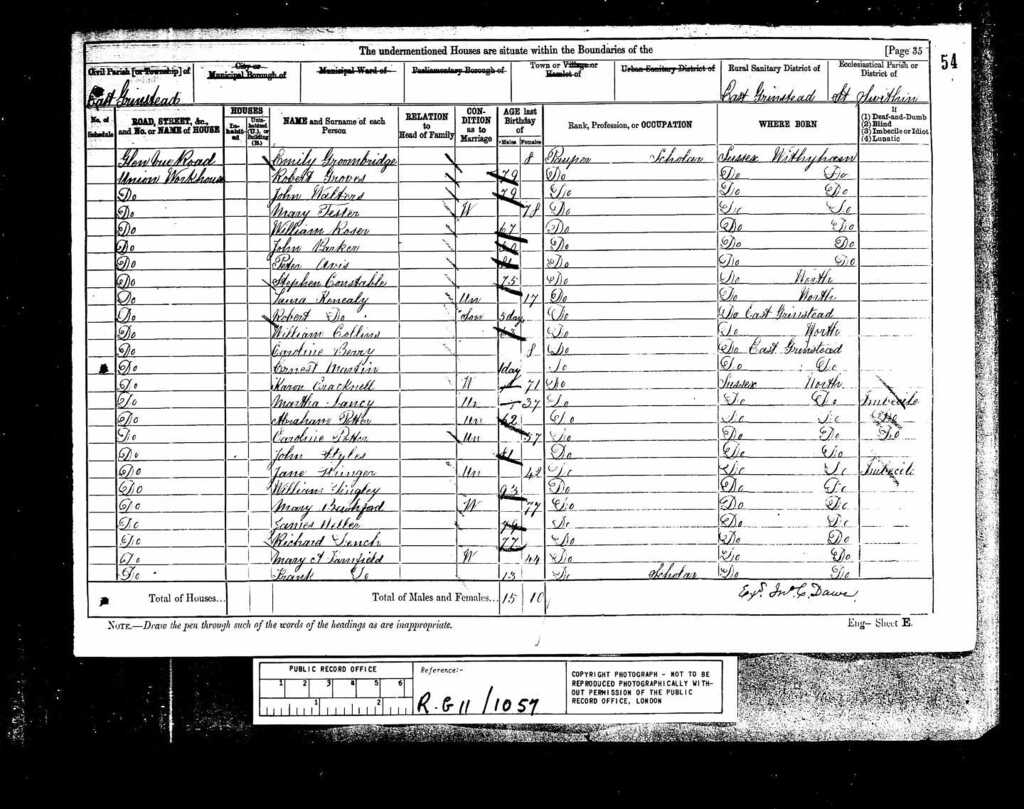 The undermentioned Houses are situate within the Boundaries of the [Page 35
54
Civil Parish [or Township] of City or Municipal Borough of Municipal Ward of Parliamentary Borough of Town or Village or Hamlet of Urban Sanitary District of Rural Sanitary District of Ecclesiastical Parish or District of
East Grinstead East Grinstead St Swithin
No. of Schedule ROAD, STREET, &c., and No. or NAME of HOUSE HOUSES Inhabited Uninhabited (U.), or Building (B.) NAME and Surname of each Person RELATION to Head of Family CONDITION as to Marriage AGE last Birthday of Males Females Rank, Profession, or OCCUPATION WHERE BORN If (1) Deaf-and-Dumb (2) Blind (3) Imbecile or Idiot (4) Lunatic
Glen Vue Road Emily Groombridge 8 Pauper Scholar Sussex Withyham
Union Workhouse Robert Groves 79 Do Do Do
Do John Walters 79 Do Do Do
Do Mary Tester W 78 Do Do Do
Do William Roser 67 Do Do Do
Do John Barker Do Do Do
Do Peter Avis Do Do Do
Do Stephen Constable 75 Do Do Worth
Do Kenealy Un 17 Do Do Worth
Do Robert Do Son 5 day Do Do East Grinstead
Do William Collins Do Do Worth
Do Caroline Berry 8 Do Do East Grinstead
Do Ernest Martin 1 day Do Do Do
Do Karon Cracknell W 71 Do Sussex Worth
Do Martha Nancy Un 37 Do Do Do Imbecile
Do Abraham Potter Un 62 Do Do Do
Do Caroline Potter Un 57 Do Do Do Do
Do John Styles Do Do Do
Do Jane Un 42 Do Do Do Imbecile
Do William Tingley 93 Do Do Do
Do Mary W 77 Do Do Do
Do James Do Do Do
Do Richard Tench 77 Do Do Do
Do Mary A W 44 Do Do Do
Do Frank Do 13 Do Scholar Do Do
Total of Houses... Total of Males and Females... 15 10
Exd. Jno. C. Dawe
NOTE.—Draw the pen through such of the words of the headings as are inappropriate. Eng- Sheet E.
PUBLIC RECORD OFFICE
1 2 3 4 5 6
1 2
Reference:-
R.G 11 / 1057
COPYRIGHT PHOTOGRAPH - NOT TO BE
REPRODUCED PHOTOGRAPHICALLY WITH-
OUT PERMISSION OF THE PUBLIC
RECORD OFFICE, LONDON